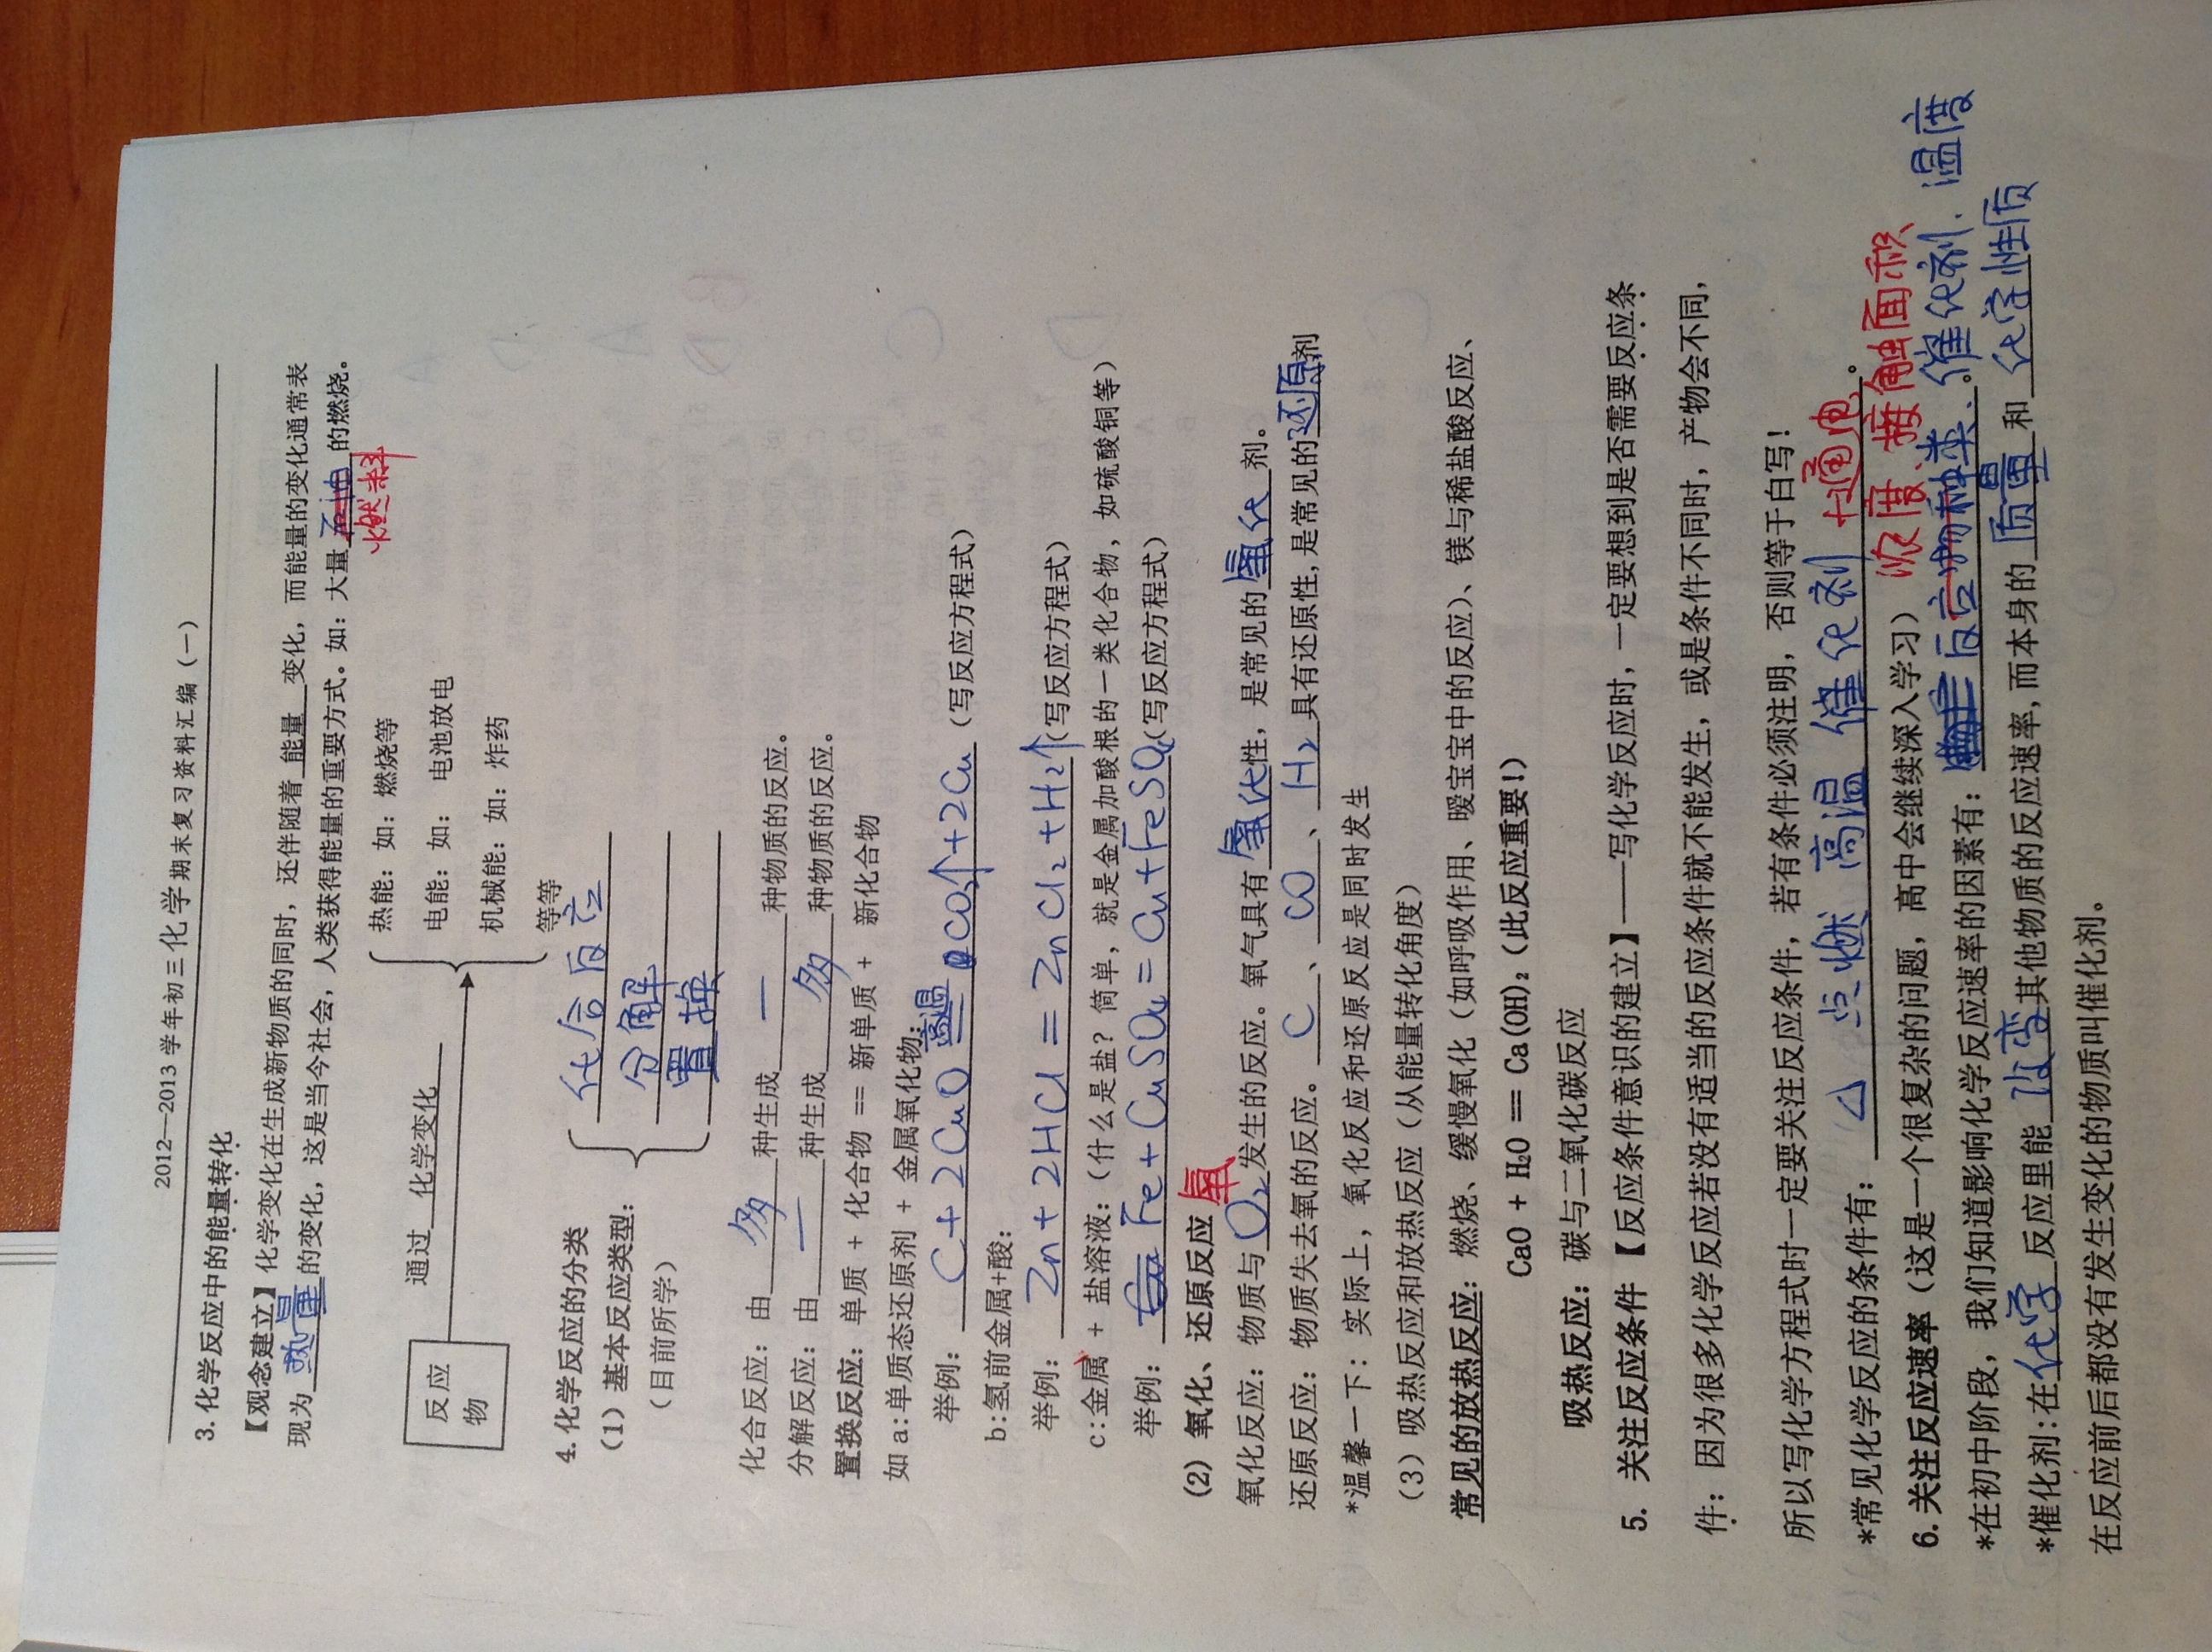 2012—2013 学年初三化学期末复习资料汇编（一）
3.化学反应中的能量转化
【观念建立】化学变化在生成新物质的同时，还伴随着 能量 变化，而能量的变化通常表
现为 热量 的变化，这是当今社会，人类获得能量的重要方式。如：大量 石油 的燃烧。
燃料
热能：如：燃烧等
通过 化学变化
反应
物
电能：如： 电池放电
机械能：如：炸药
等等
4.化学反应的分类
化合反应
（1）基本反应类型：
分解
（目前所学）
置换
化合反应：由 多 种生成 一 种物质的反应。
分解反应：由 一 种生成 多 种物质的反应。
置换反应：单质 + 化合物 == 新单质 + 新化合物
如 a:单质态还原剂 + 金属氧化物：
高温
举例： C+2CuO = CO₂↑+2Cu （写反应方程式）
b:氢前金属+酸：
举例： Zn+2HCl = ZnCl₂+H₂↑ （写反应方程式）
c:金属 + 盐溶液：（什么是盐？简单，就是金属加酸根的一类化合物，如硫酸铜等）
举例： Fe+CuSO₄=Cu+FeSO₄ （写反应方程式）
(2) 氧化、还原反应 氧
氧化反应：物质与 O₂ 发生的反应。氧气具有 氧化 性，是常见的 氧化 剂。
还原反应：物质失去氧的反应。 C 、 CO 、 H₂ 具有还原性，是常见的 还原 剂
*温馨一下：实际上，氧化反应和还原反应是同时发生
（3）吸热反应和放热反应（从能量转化角度）
常见的放热反应：燃烧、缓慢氧化（如呼吸作用、暧宝宝中的反应）、镁与稀盐酸反应、
CaO + H₂O == Ca(OH)₂（此反应重要!）
吸热反应：碳与二氧化碳反应
5. 关注反应条件 【反应条件意识的建立】——写化学反应时，一定要想到是否需要反应条
件：因为很多化学反应若没有适当的反应条件就不能发生，或是条件不同时，产物会不同，
所以写化学方程式时一定要关注反应条件，若有条件必须注明，否则等于白写！
*常见化学反应的条件有： △ 点燃 高温 催化剂 +通电 。
6.关注反应速率（这是一个很复杂的问题，高中会继续深入学习） 浓度、接触面积
*在初中阶段，我们知道影响化学反应速率的因素有： 反应物种类、 。催化剂、温度
*催化剂：在 化学 反应里能 改变 其他物质的反应速率，而本身的 质量 和 化学性质
在反应前后都没有发生变化的物质叫催化剂。